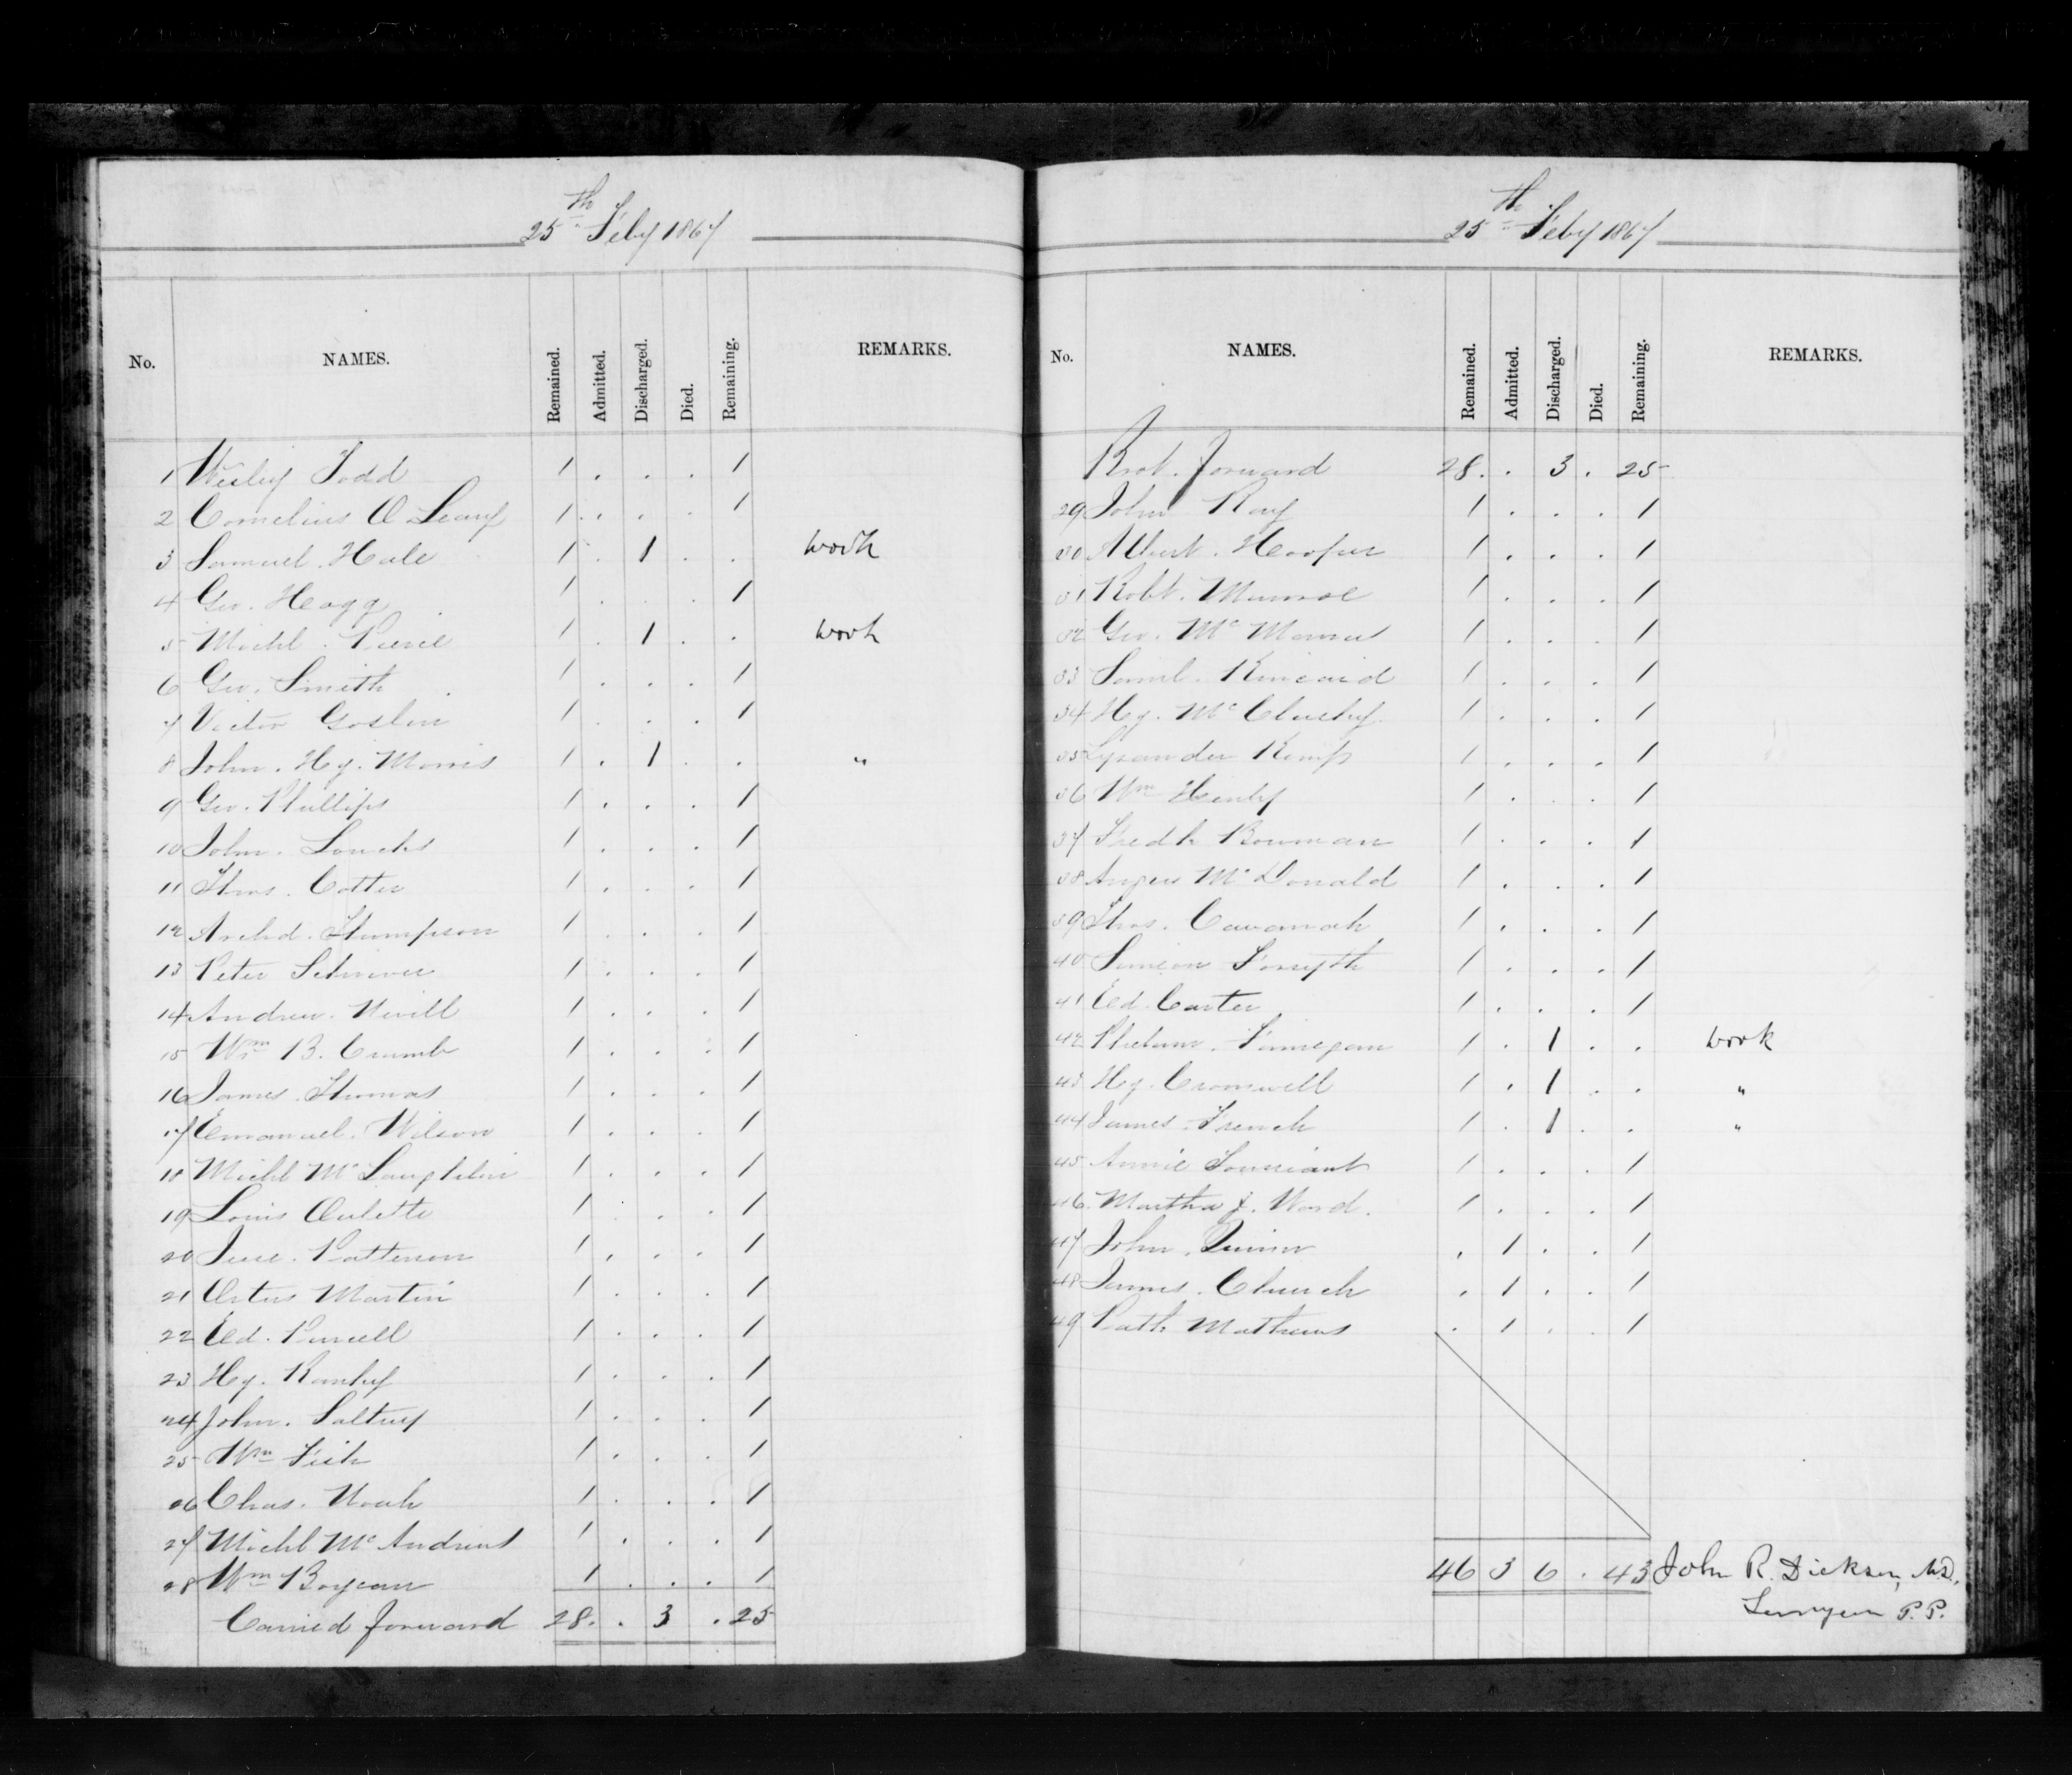 25th Feby 1867
No. NAMES. Remained. Admitted. Discharged. Died. Remaining. REMARKS.
1 Wesley Todd 1 . . . 1
2 Cornelius O Leary 1 . . . 1
3 Samuel Hale 1 . 1 . . work
4 Geo. Heagg 1 . . . 1
5 Michl. Pierie 1 . 1 . . work
6 Geo. Smith 1 . . . 1
7 Victor Goslin 1 . . . 1
8 John. Hy. Morris 1 . 1 . . "
9 Geo. Phillips 1 . . . 1
10 John. Loucks 1 . . . 1
11 Thos. Cotter 1 . . . 1
12 Archd. Thompson 1 . . . 1
13 Peter Schriver 1 . . . 1
14 Andrew. Nevill 1 . . . 1
15 Wm B. Crumb 1 . . . 1
16 James. Thomas 1 . . . 1
17 Emanuel. Wilson 1 . . . 1
18 Michl McLaughlin 1 . . . 1
19 Louis Oulette 1 . . . 1
20 Jesse. Patterson 1 . . . 1
21 Martin 1 . . . 1
22 Ed. Purcell 1 . . . 1
23 Hy. Ranley 1 . . . 1
24 John. Saltrey 1 . . . 1
25 Wm Fish 1 . . . 1
26 Chas. Noah 1 . . . 1
27 Michl McAndrews 1 . . . 1
28 Wm Boyean 1 . . . 1
Carried forward 28 . . 3 . 25
25th Feby 1867
No. NAMES. Remained. Admitted. Discharged. Died. Remaining. REMARKS.
Brot. forward 28 . . 3 . 25
29 John Ray 1 . . . 1
30 Albert. Hooper 1 . . . 1
31 Robt. Munroe 1 . . . 1
32 Geo. McManus 1 . . . 1
33 Saml. Kincaid 1 . . . 1
34 Hy. McCluskey 1 . . . 1
35 Lysander Kemp 1 . . . 1
36 Wm Henley 1 . . . 1
37 Fredk Bowman 1 . . . 1
38 Angus McDonald 1 . . . 1
39 Thos. Cavanah 1 . . . 1
40 Simeon Forsyth 1 . . . 1
41 Ed. Carter 1 . . . 1
42 Finnegan 1 . 1 . . work
43 Hy. Cromwell 1 . 1 . . "
44 James. French 1 . 1 . . "
45 Annie Toussiant 1 . . . 1
46 Martha J. Ward. 1 . . . 1
47 John. Quinn . 1 . . 1
48 James. Church . 1 . . 1
49 Patk Mathews . 1 . . 1
46 3 6 . 43 John R. Dickson, M.D.,
Surgeon P. P.